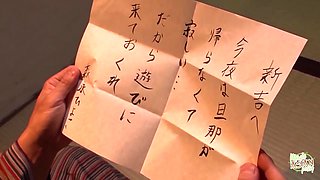 新吉へ
今夜は旦那が
帰らなくて
寂しい…
だから遊びに
来ておくれ